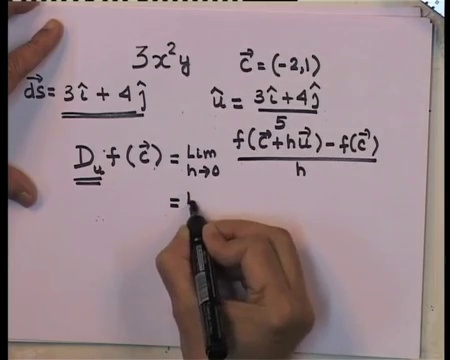 3x²y c⃗ = (-2,1)
d⃗s = 3î + 4ĵ û = (3î + 4ĵ)/5
D_u f(c⃗) = Lim h→0 (f(c⃗ + hu⃗) - f(c⃗))/h
=